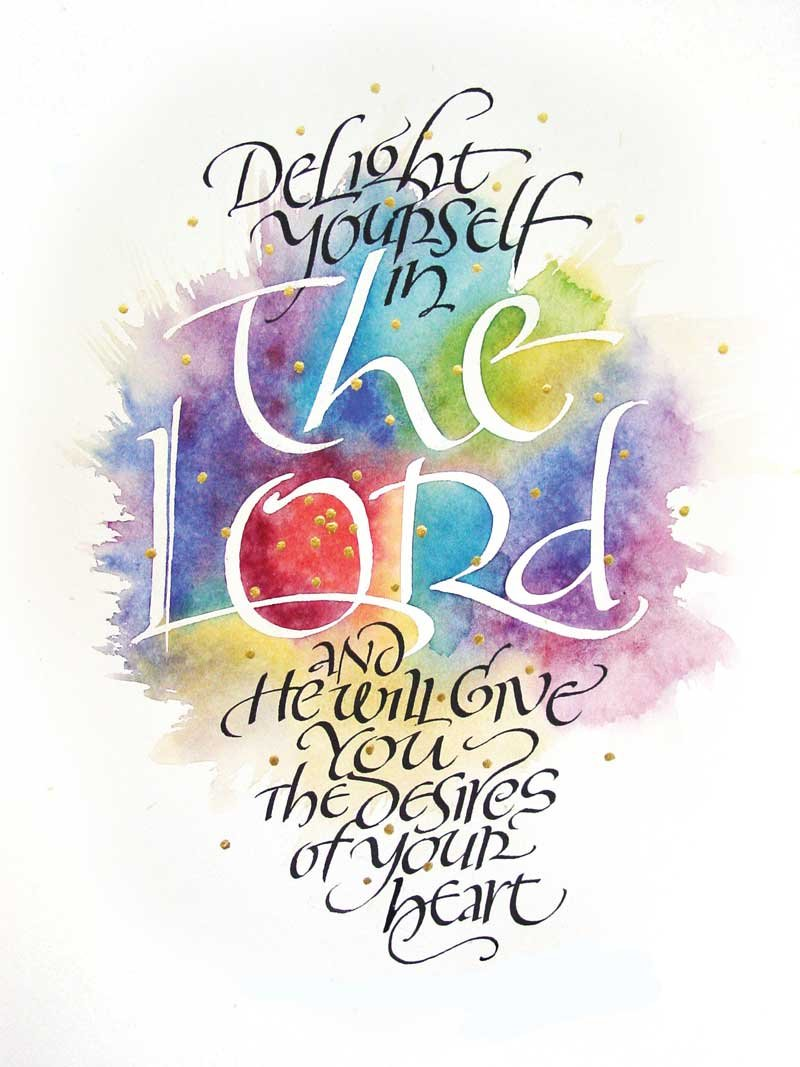 Delight
yourself
in
the
Lord
and
He will Give
you
the desires
of your
heart